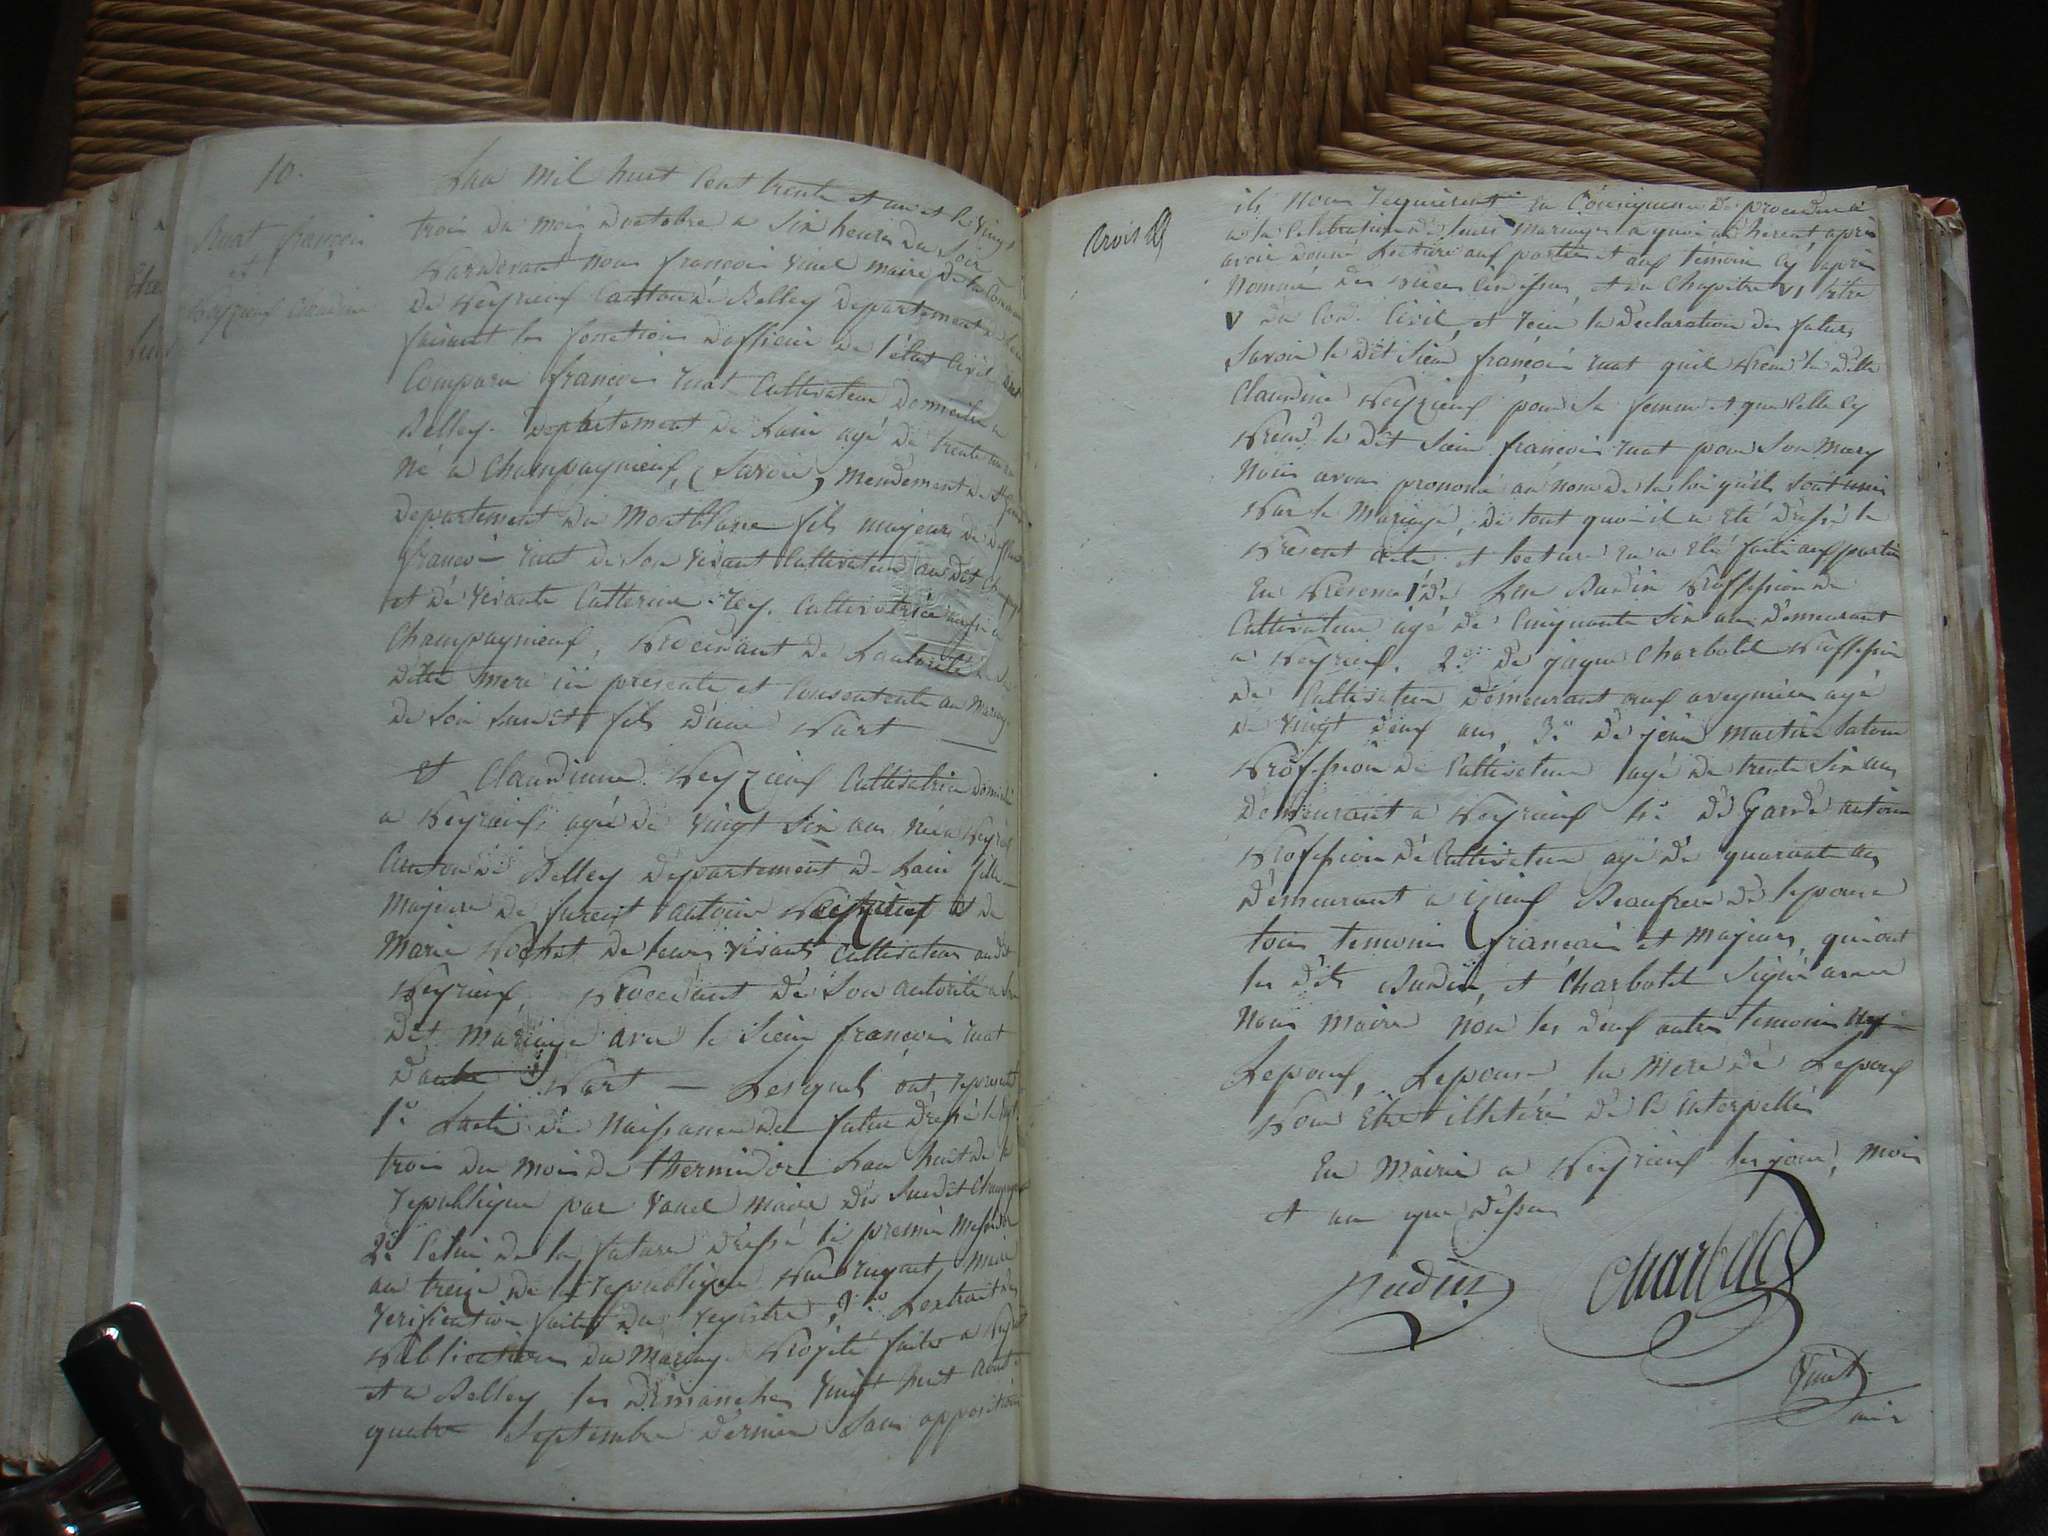 10.
Ruat françois
et
Peyzieux Claudine
Lan mil huit Cent trente et un et le vingt
trois du mois doctobre a six heures du Soir
Pardevant nous francois vuel maire de la Commune
de Peyrieux Canton de Belley Departement de Lain
faisant les fonctions dofficier de l'état Civil sont
Comparu francois ruat Cultivateur domicilié a
Belley. Département de Lain agé de trente un ans
né a Champagneux, (Savoie) mendement de St
Departement du Montblanc fils majeur de deffunt
francois ruat de son vivant Cultivateur au dit
et de vivante Catterine rey. Cultivatrice aussi a
Champagneux, Procédant de Lautorité de sa
ditte mere ici presente et Consentente au Mariage
de son susdit fils d'une Part —
Et Claudinne Peyzieux Cultivatrice domiciliée
a Peyrieux, agée de vingt six ans née a Peyrieux
Canton de Belley département de Lain fille
Majeure de furent antoine Peyzieux et de
Marie Pochet de leurs vivants Cultivateurs audit
Peyrieux, Procédant de Son autorité a Son
dit Mariage avec le Sieur francois ruat
dautre Part — Lesquels ont representé
1º Lacte de Naissance du futur dressé le vingt
trois du mois de thermidor Lan huit de la
republique par vanel maire du Susdit Champagneux
2º Celui de la future dressé le premier Messidor
an treize de la republique Par ruyat, maire
verification faite du registre, 3º Lextrait des
Publications du Mariage Projeté faites a Peyrieux
et a Belley les dimanches vingt huit aout et
quatre Septembre dernier Sans opposition
ils nous requierent en Conséquence de proceder
a la Celebration de leurs mariages a quoi adherent apres
avoir donné Lecture aux parties et aux témoins cy apres
Nommés des Pieces Cidessus, et du Chapitre VI titre
V du Code Civil, et recu la déclaration des futurs
Savoir le dit Sieur francois ruat quil Prend la ditte
Claudine Peyzieux pour sa femme et que Celle Cy
Prend le dit Sieur francois ruat pour Son Mary
Nous avons prononcé au nom de la loi quils Sont unis
Par le Mariage, de tout quoi il a été dressé le
Present acte et lecture en a été faite aux parties
En Présence 1º de Baudin Proffession de
Cultivateur agé de Cinquante six ans demeurant
a Peyrieux, 2º de jaque Charbotel Proffession
de Cultivateur demeurant aux aveynieres agé
de vingt deux ans, 3º de jean martin
Proffession de Cultivateur agé de trente six ans
Demeurant a Peyrieux 4º de Gardé antoine
Proffession de Cultivateur agé de quarante ans
demeurant a izieux Beaufrere de lepouse
tous temoins francais et Majeurs, qui ont
les dits Baudin, et Charbotel Signé avec
Nous maire non les deux autres temoins ny
Lepoux, Lepouse la Mere de Lepoux
Pour Etre illitéré de Ce interpellés
En Mairie a Peyrieux les jour, mois
et an que dessus
Charbotel
maire